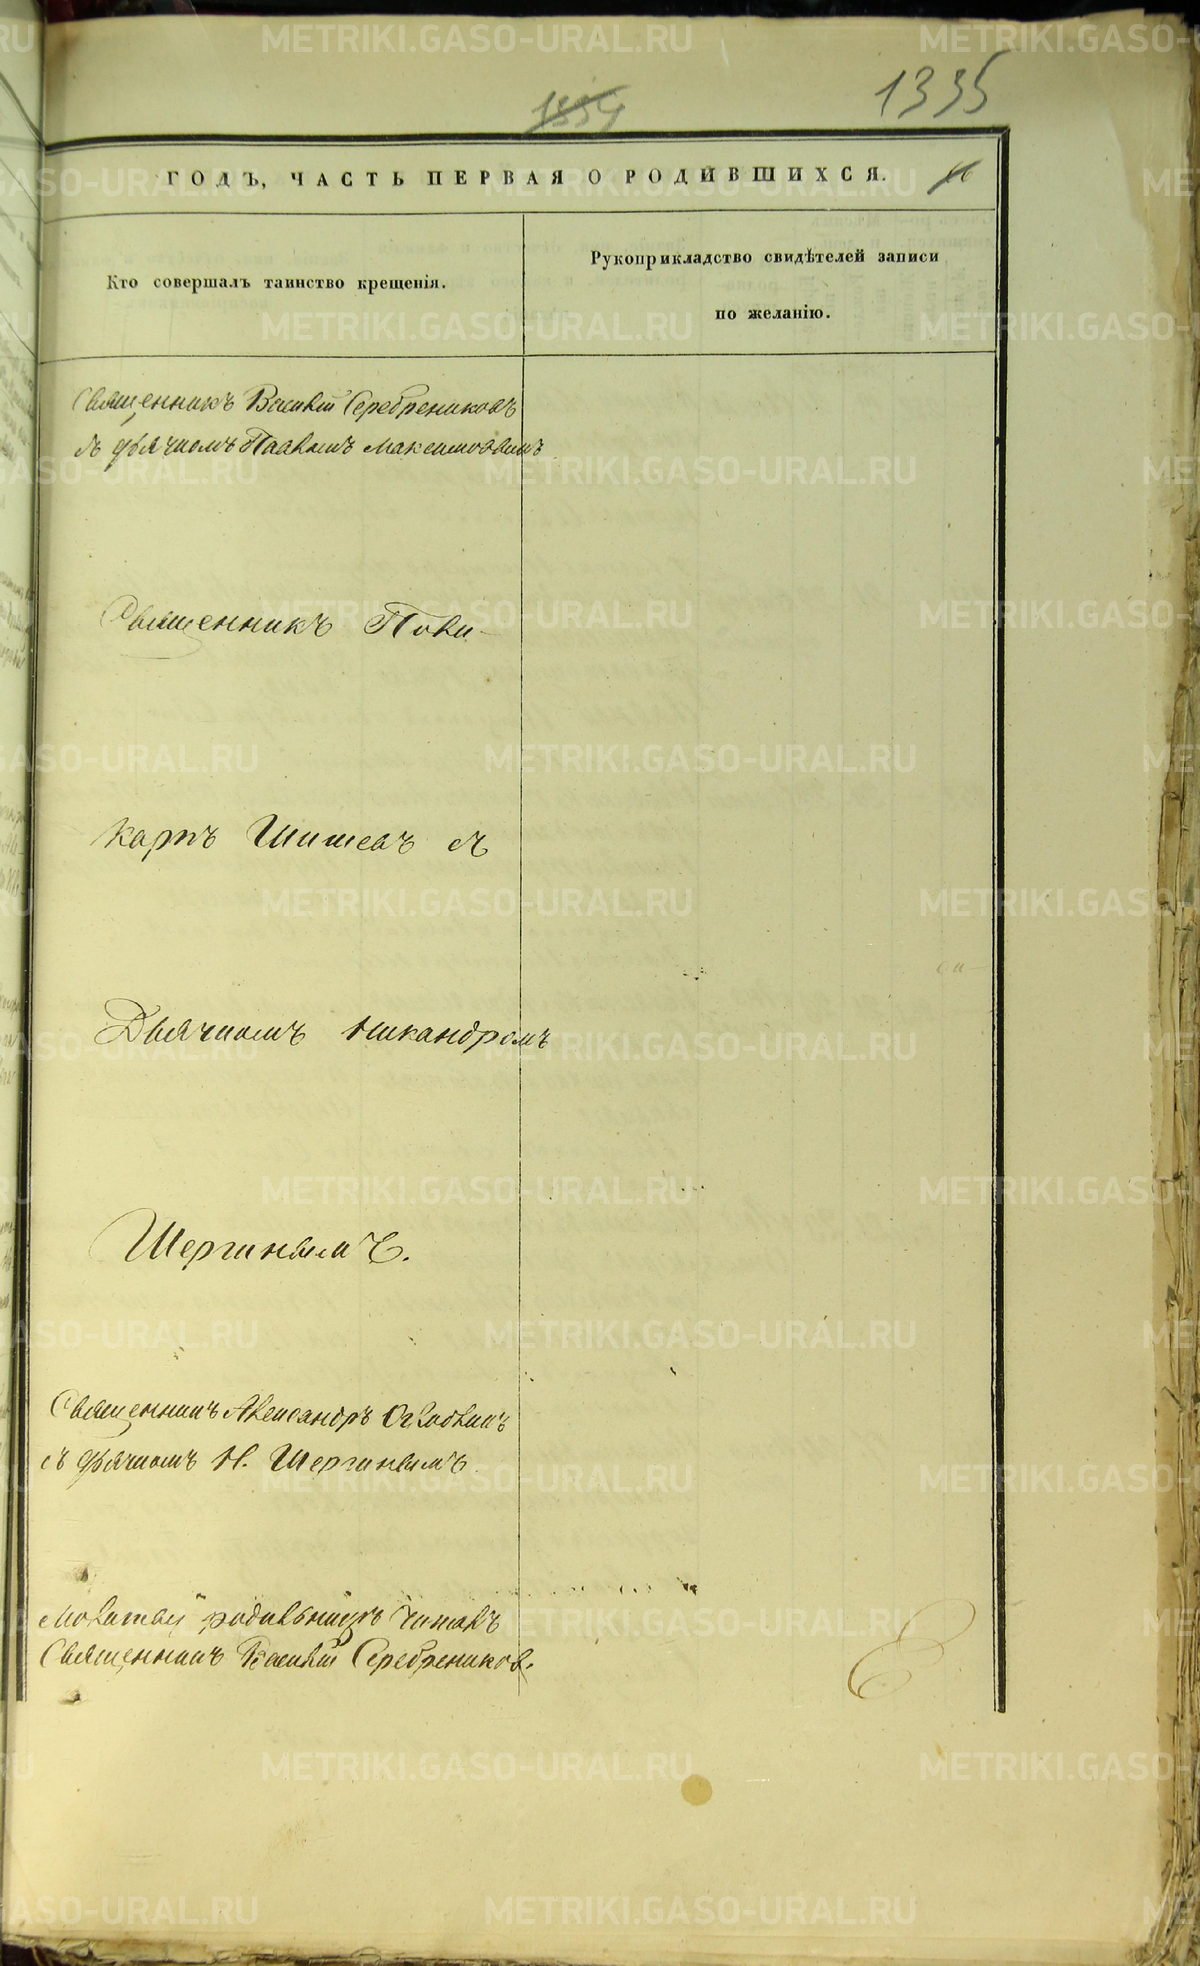 1335
1334
ГОДЪ, ЧАСТЬ ПЕРВАЯ О РОДИВШИХСЯ.
Кто совершалъ таинство крещенія.
Рукоприкладство свидѣтелей записи
по желанію.
Священникъ Василій Серебрениковъ
съ дьячкомъ Павломъ Максимовымъ
Священникъ
Карпъ Шишевъ съ
Дьячкомъ Никандромъ
Шергинымъ.
Священникъ Александръ
съ дьячкомъ Н. Шергинымъ
Молитву родильницѣ читалъ
Священникъ Василій Серебрениковъ.
METRIKI.GASO-URAL.RU